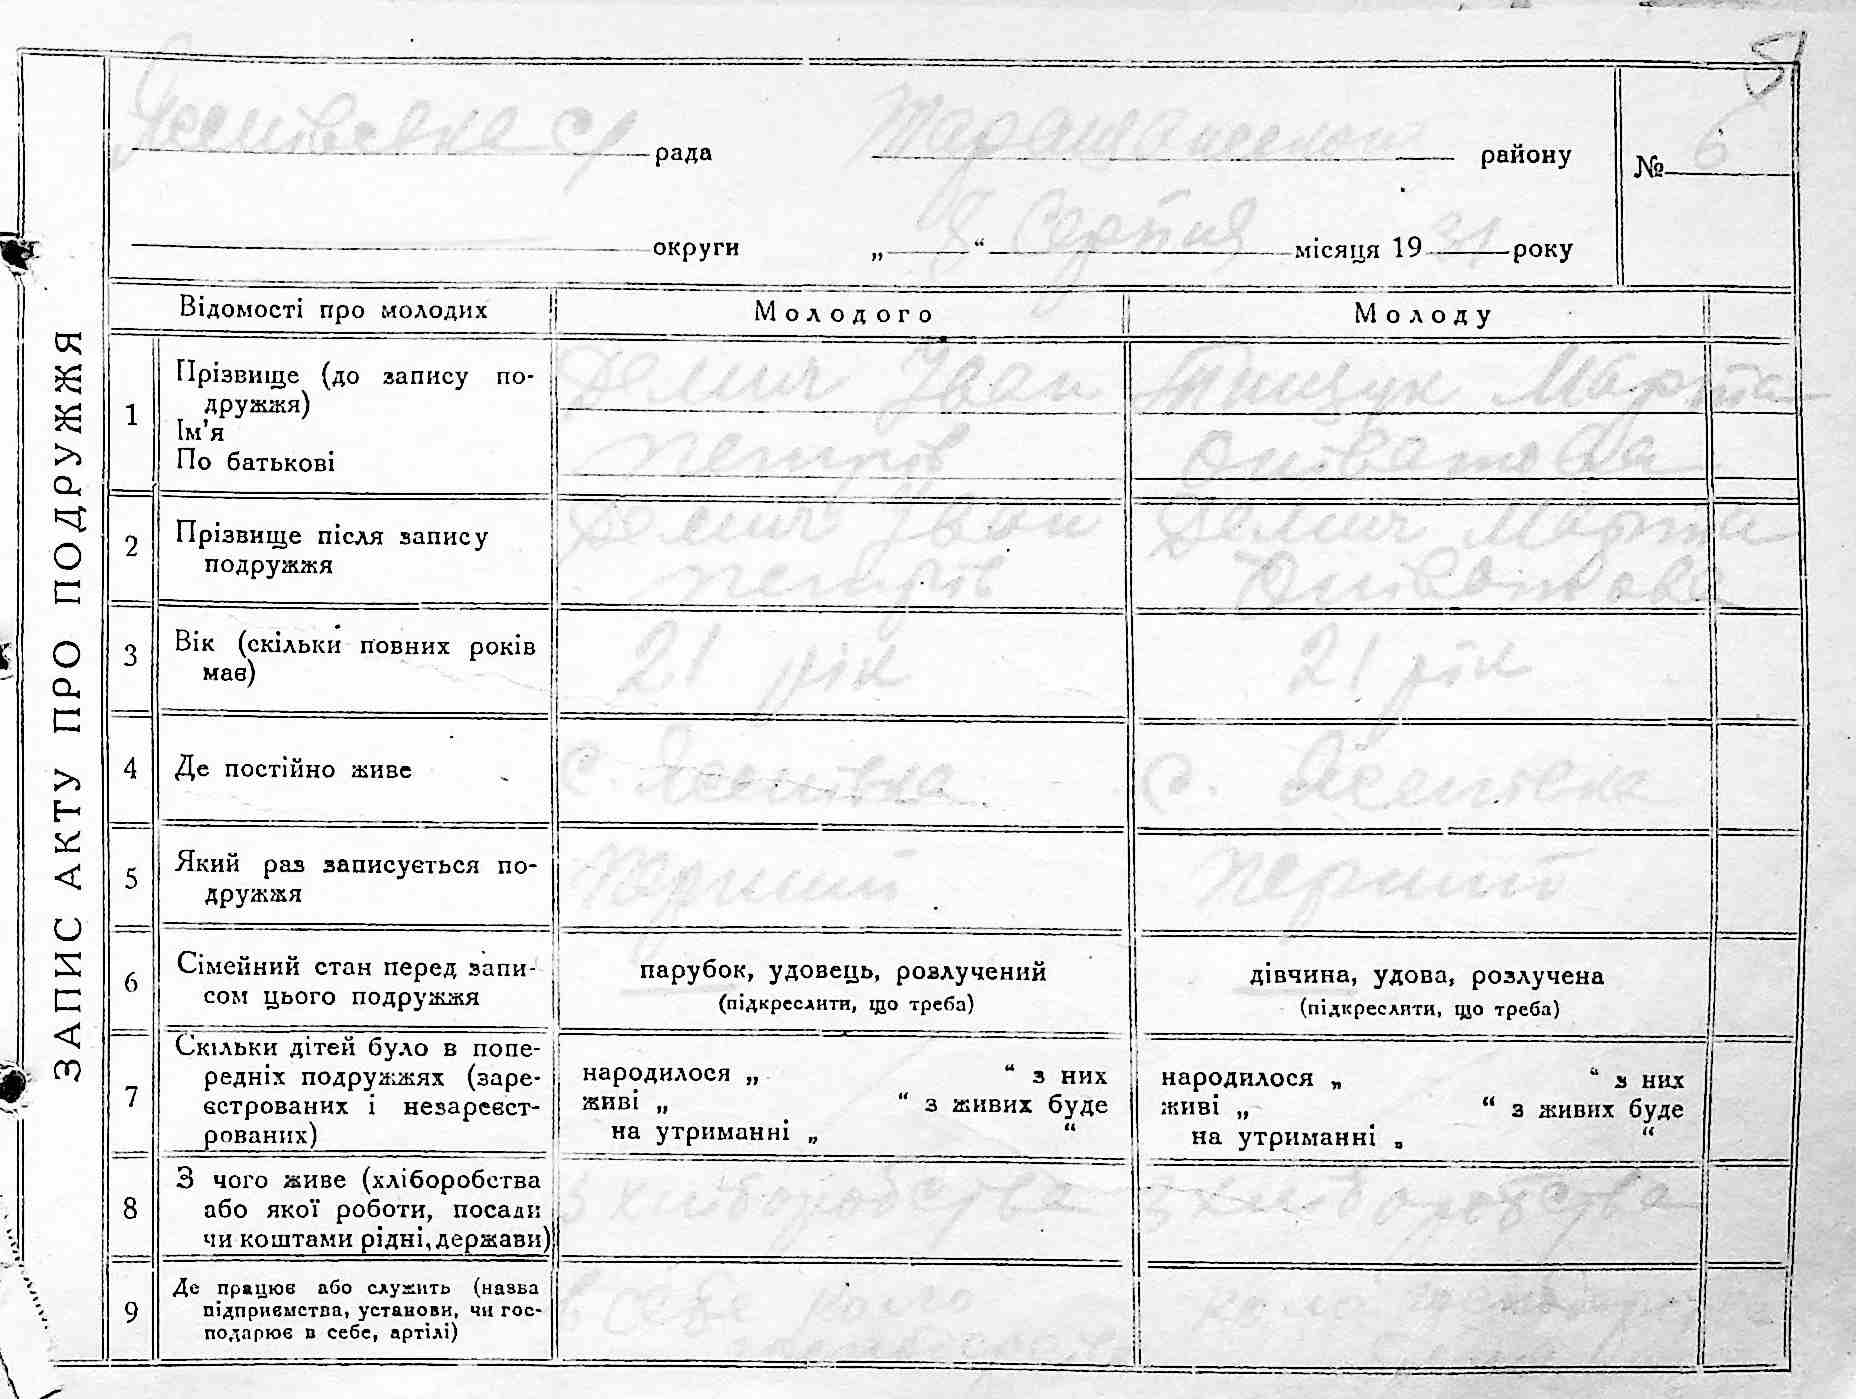 51
Яснівська с/ рада Таращанського району № 6
округи „ 8 “ Серпня місяця 19 31 року
ЗАПИС АКТУ ПРО ПОДРУЖЖЯ
Відомості про молодих Молодого Молоду
1 Прізвище (до запису по-
дружжя)
Ім'я
По батькові
Демич Іван
Петрів
Тищук Марта
2 Прізвище після запису
подружжя
Демич Іван
Петрів
Демич Марта
3 Вік (скільки повних років
має)
21 рік
21 рік
4 Де постійно живе
с.
с.
5 Який раз записується по-
дружжя
Перший
Перший
6 Сімейний стан перед запи-
сом цього подружжя
парубок, удовець, розлучений
(підкреслити, що треба)
дівчина, удова, розлучена
(підкреслити, що треба)
7 Скільки дітей було в попе-
редніх подружжях (заре-
єстрованих і незареєст-
рованих)
народилося „ “ з них
живі „ “ з живих буде
на утриманні „ “
народилося „ “ з них
живі „ “ з живих буде
на утриманні „ “
8 З чого живе (хліборобства
або якої роботи, посади
чи коштами рідні, держави)
З хліборобства
З хліборобства
9 Де працює або служить (назва
підприємства, установи, чи гос-
подарює в себе, артілі)
в себе